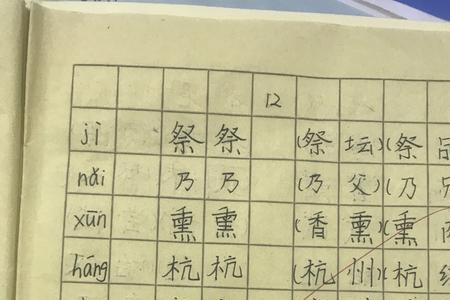 12
jì 祭 祭 (祭 坛)(祭
nǎi 乃 乃 (乃 父)(乃
xūn 熏 熏 (香 熏)(熏
háng 杭 杭 (杭 州)(杭